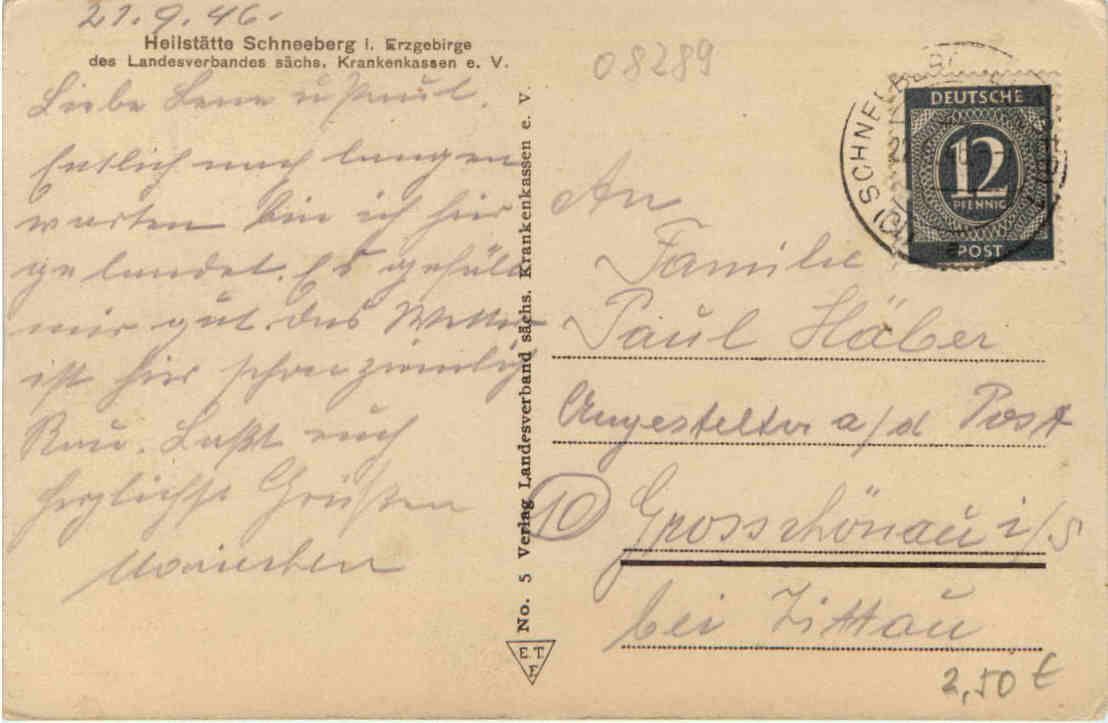 21.9.46.
Heilstätte Schneeberg i. Erzgebirge
des Landesverbandes sächs. Krankenkassen e. V.
Liebe Lene u Paul.
Entlich nach langen
warten bin ich hier
gelandet. Es gefällt
mir gut. das Wetter
ist hier schon ziemlich
Rau. Laßt euch
herzlichst Grüßen
Mariechen
No. 5 Verlag Landesverband sächs. Krankenkassen e. V.
E.T.
E
08289
SCHNEEBERG
DEUTSCHE
12
PFENNIG
POST
An
Familie
Paul Häber
Angestellter a/d Post
10 Grossschönau i/S
bei Zittau
2,50 €